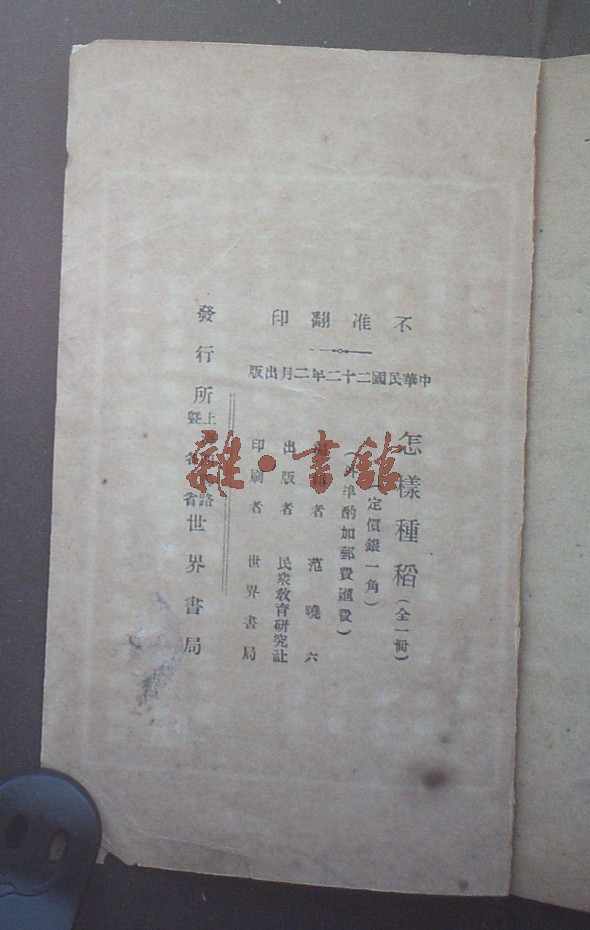 不准翻印
中華民國二十二年二月出版
怎樣種稻(全一冊)
定價銀一角)
酌加郵費匯費)
者 范曉六
出版者 民衆敎育硏究社
印刷者 世界書局
發行所 上 路曁各省 世界書局
雜·書館